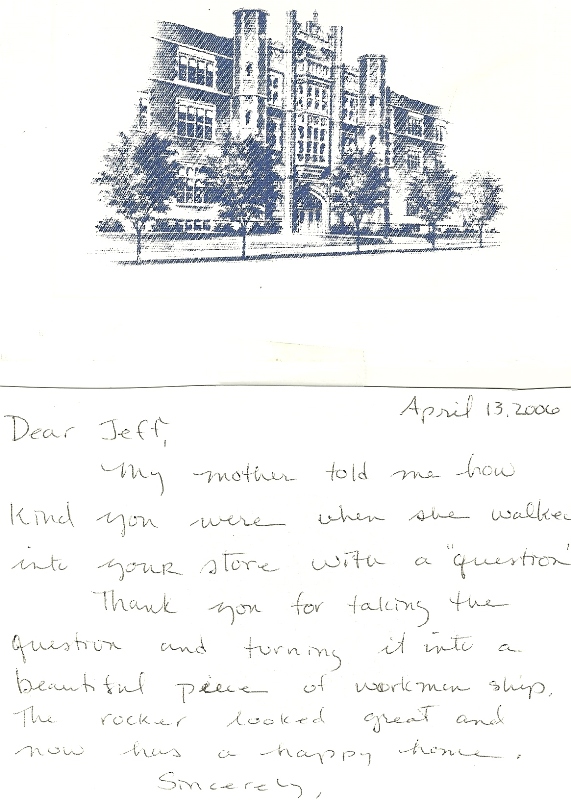 April 13, 2006
Dear Jeff,
My mother told me how
kind you were when she walked
into your store with a "question"
Thank you for taking the
question and turning it into a
beautiful piece of workman ship.
The rocker looked great and
now has a happy home.
Sincerely,